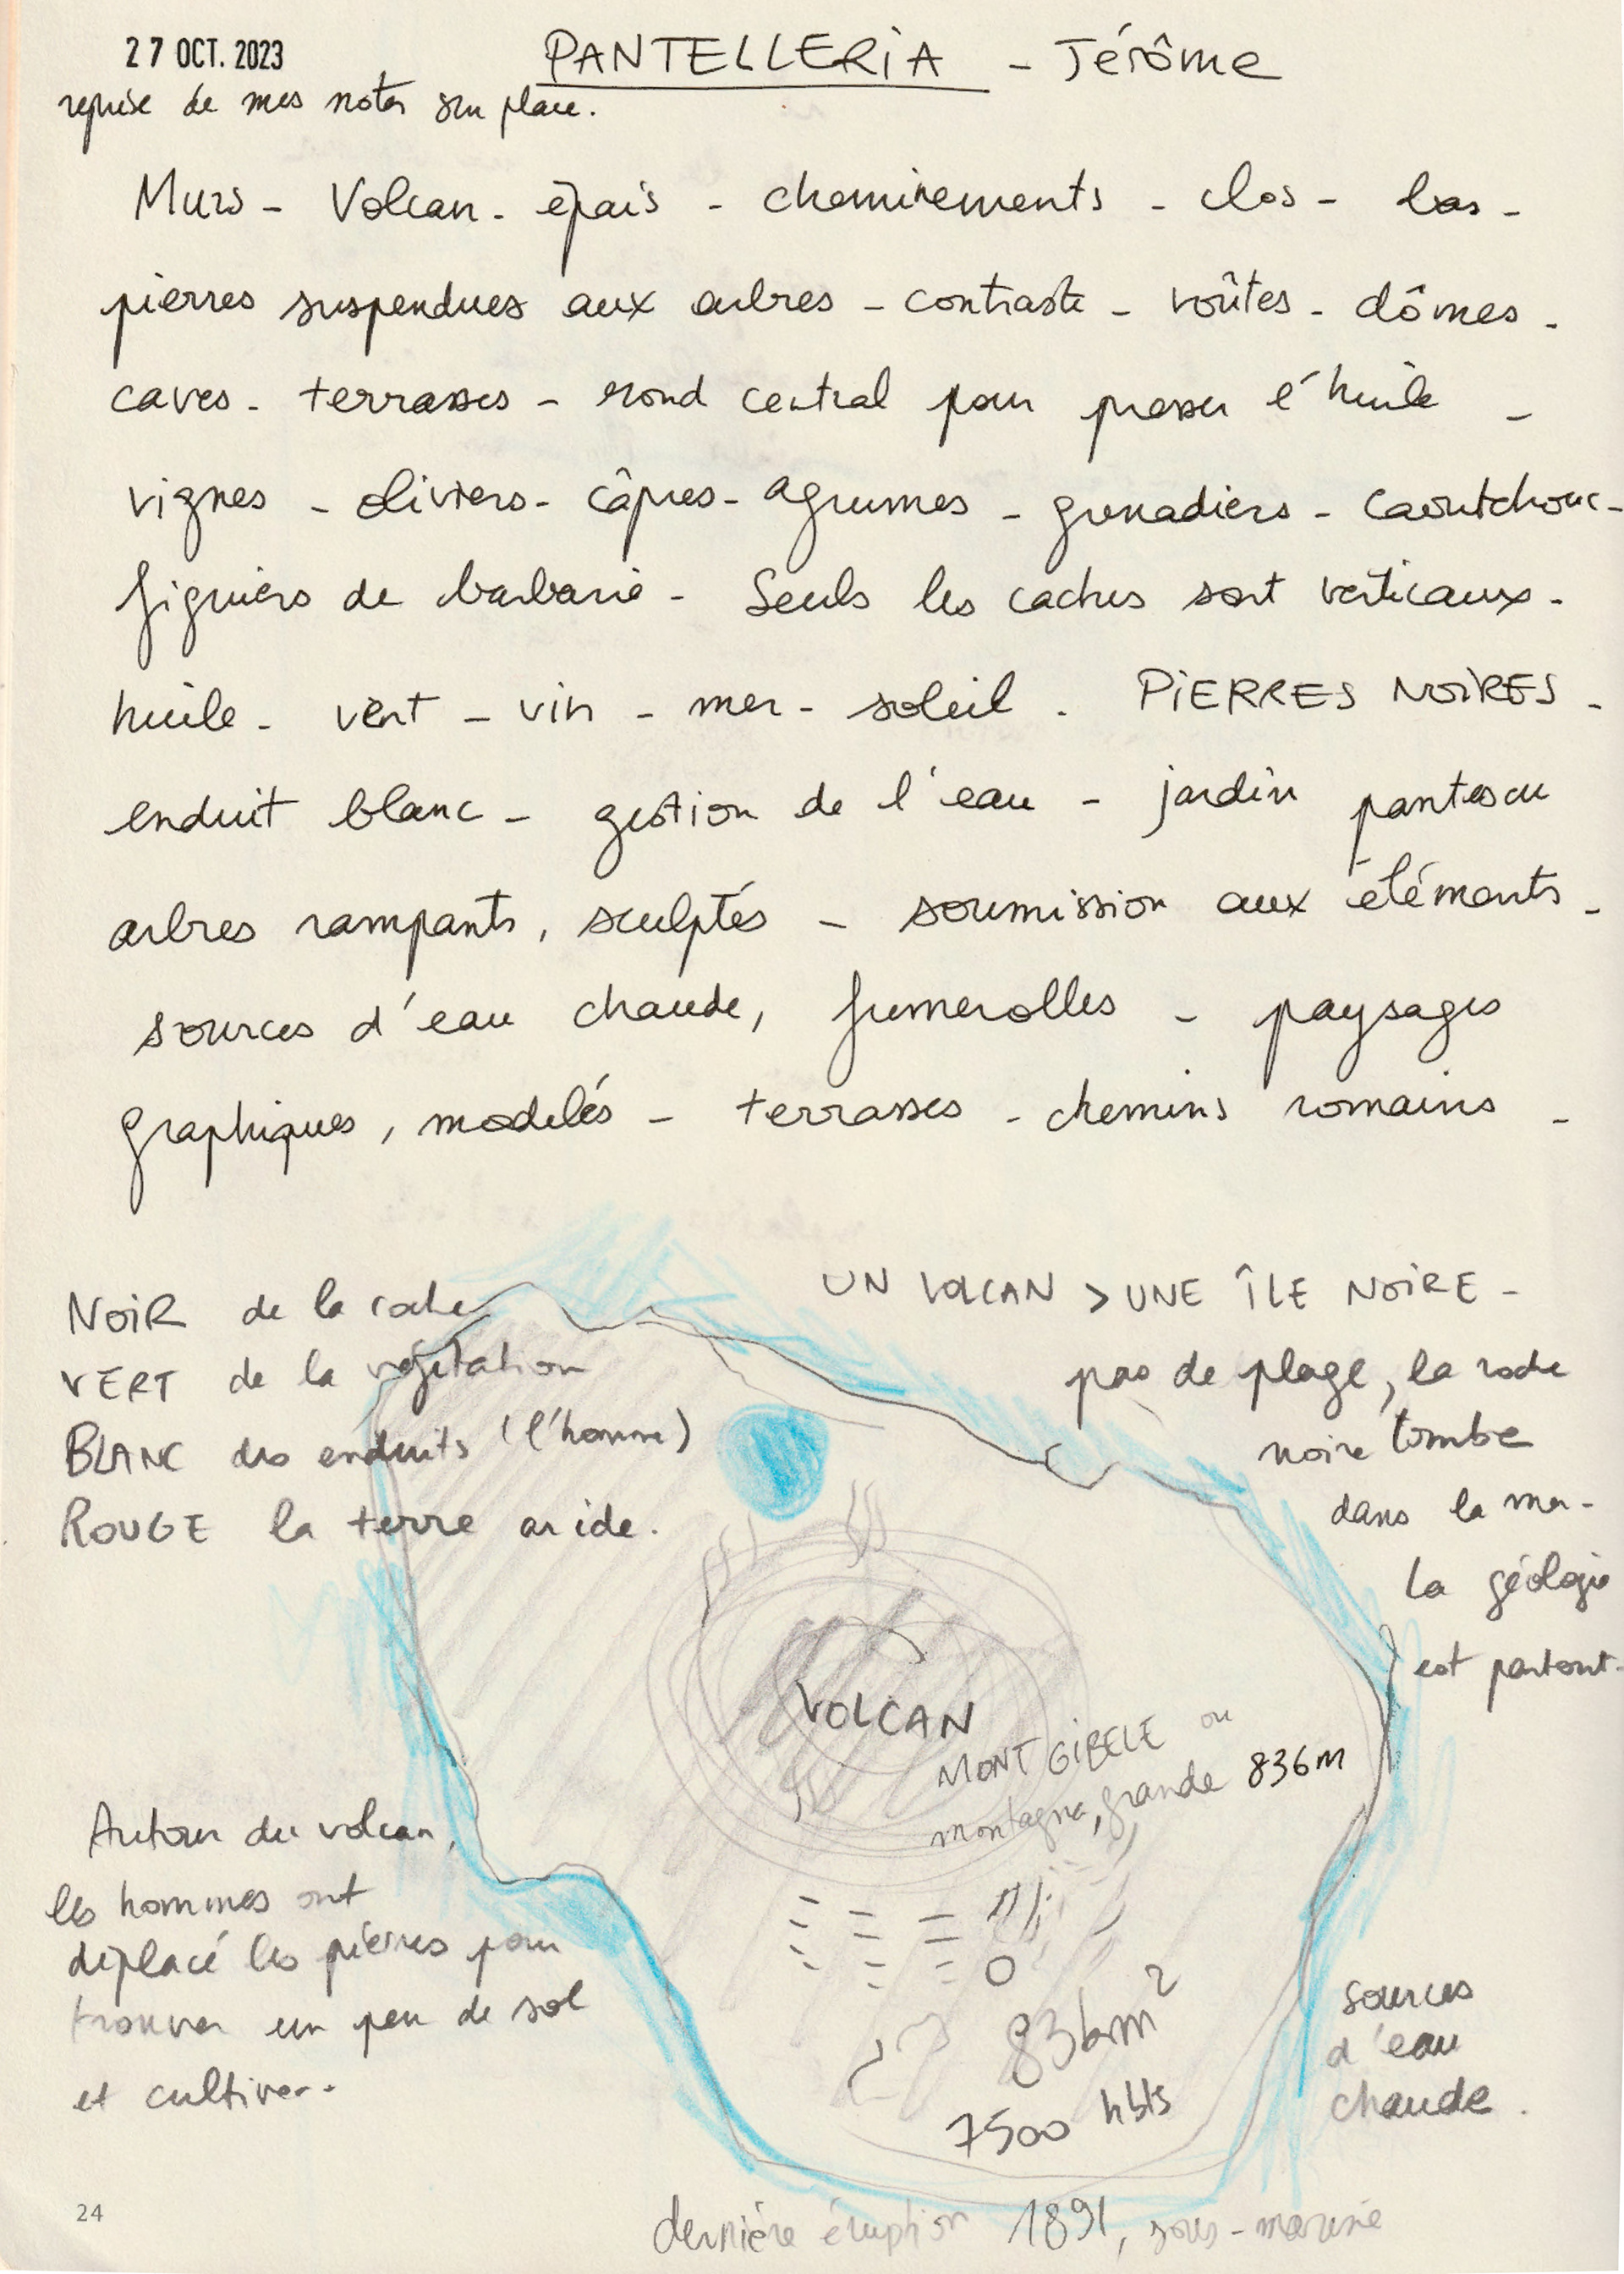 27 OCT. 2023
PANTELLERiA - Jérôme
reprise de mes notes sur place.
Murs - Volcan - épais - cheminements - clos - bas -
pierres suspendues aux arbres - contraste - voûtes - dômes -
caves - terrasses - rond central pour presser l'huile -
vignes - oliviers - câpres - agrumes - grenadiers - caoutchouc -
figuiers de barbarie - Seuls les cactus sont verticaux -
huile - vent - vin - mer - soleil - PiERRES NOiRES -
enduit blanc - gestion de l'eau - jardin pantescu
arbres rampants, sculptés - soumission aux éléments -
sources d'eau chaude, fumerolles - paysages
graphiques, modelés - terrasses - chemins romains -
NOiR de la roche
VERT de la végétation
BLANC des enduits (l'homme)
ROUGE la terre aride.
UN VOLCAN > UNE ÎLE NOiRE -
pas de plage, la roche
noire tombe
dans la mer -
La géologie
est partout -
VOLCAN
MONT GIBELE ou
montagna grande 836m
Autour du volcan,
les hommes ont
déplacé les pierres pour
trouver un peu de sol
et cultiver.
83km²
7500 hbts
sources
d'eau
chaude.
dernière éruption 1891, sous-marine
24